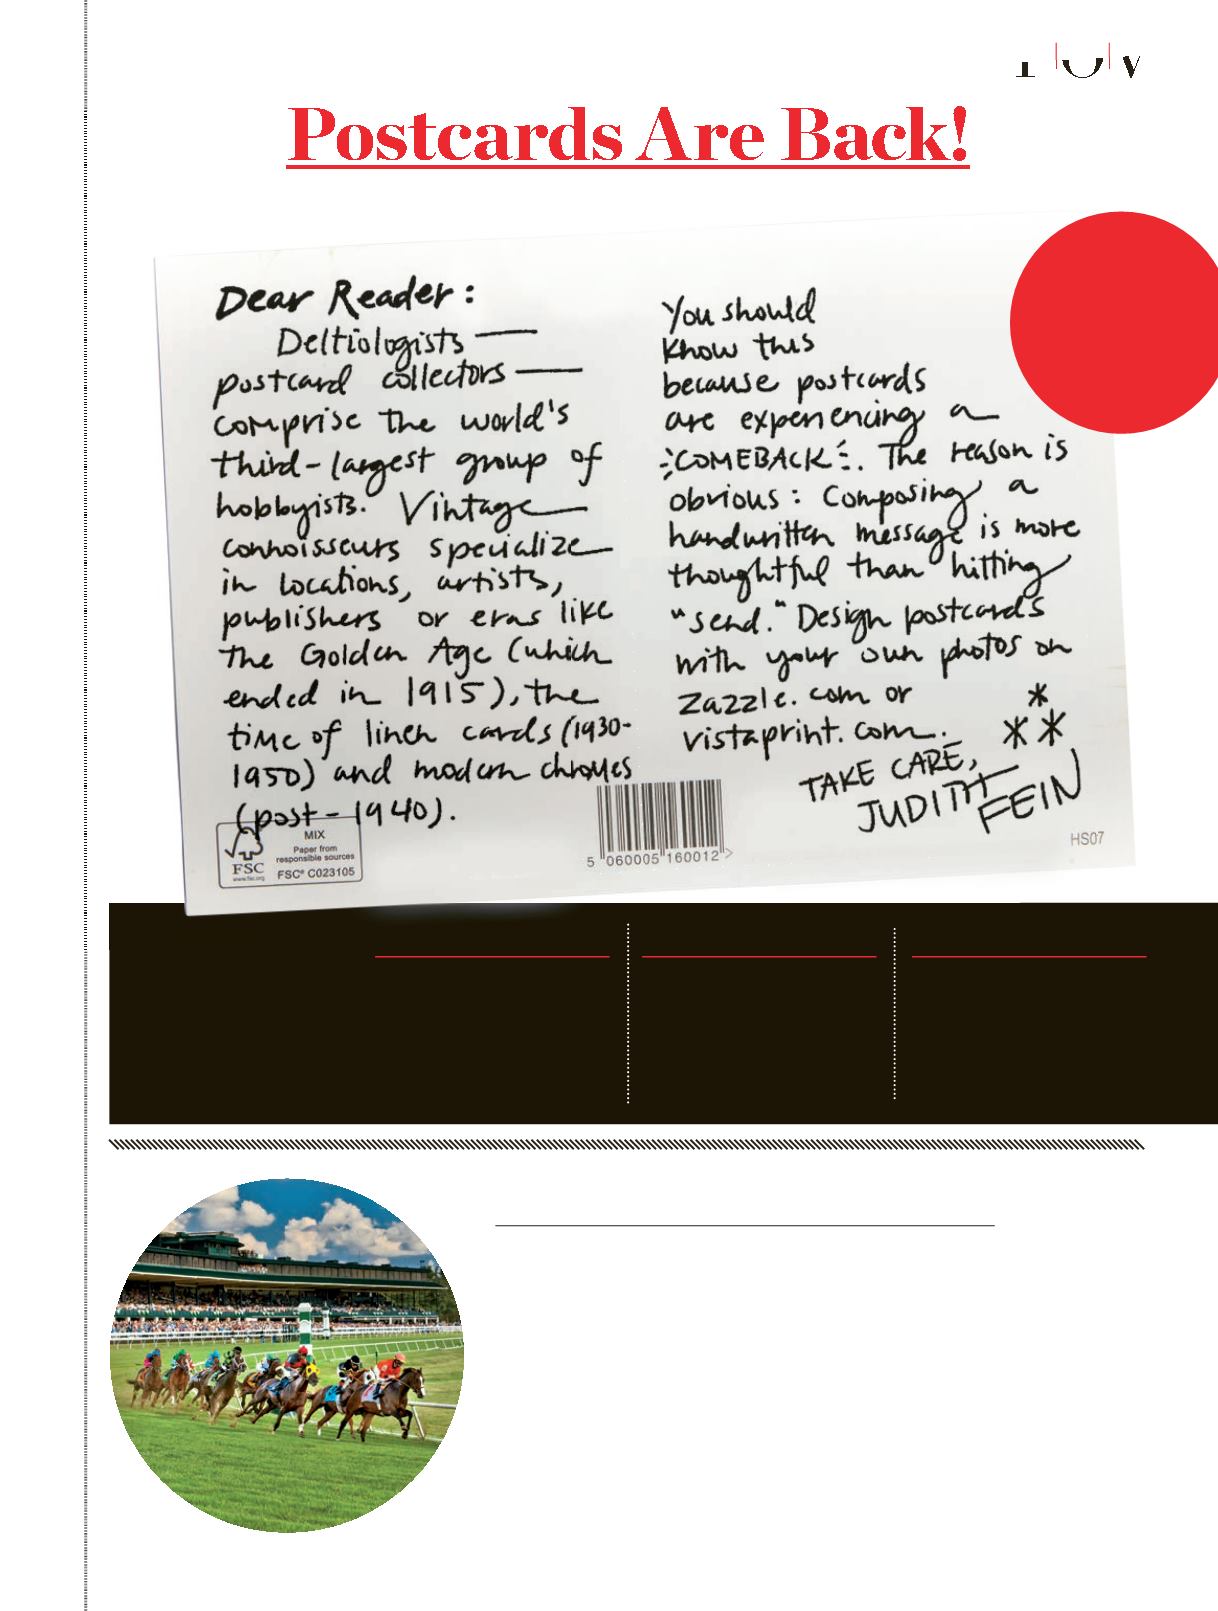 Postcards Are Back!
Dear Reader:
Deltiologists —
postcard collectors —
comprise the world's
third-largest group of
hobbyists. Vintage
connoisseurs specialize
in locations, artists,
publishers or eras like
the Golden Age (which
ended in 1915), the
time of linen cards (1930-
1950) and modern chromes
(post-1940).
You should
know this
because postcards
are experiencing a
COMEBACK. The reason is
obvious: Composing a
handwritten message is more
thoughtful than hitting
"send." Design postcards
with your own photos on
zazzle.com or
vistaprint.com.
TAKE CARE,
JUDITH
FEIN
MIX
Paper from
responsible sources
FSC
www.fsc.org
FSC® C023105
5 060005 160012 >
HS07